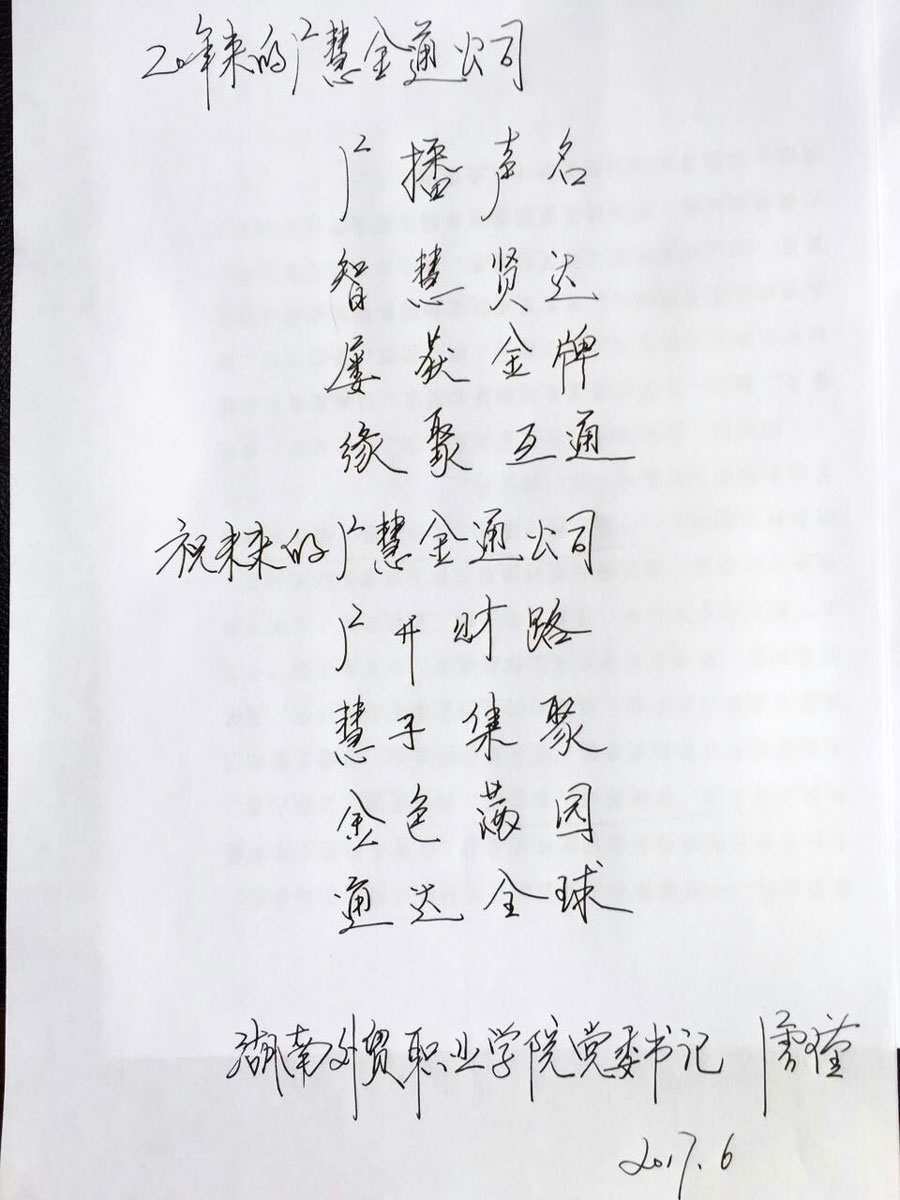 20年来的广慧金通公司
广播声名
智慧贤达
屡获金牌
缘聚互通
祝未来的广慧金通公司
广开财路
慧子集聚
金色满园
通达全球
湖南外贸职业学院党委书记
2017.6